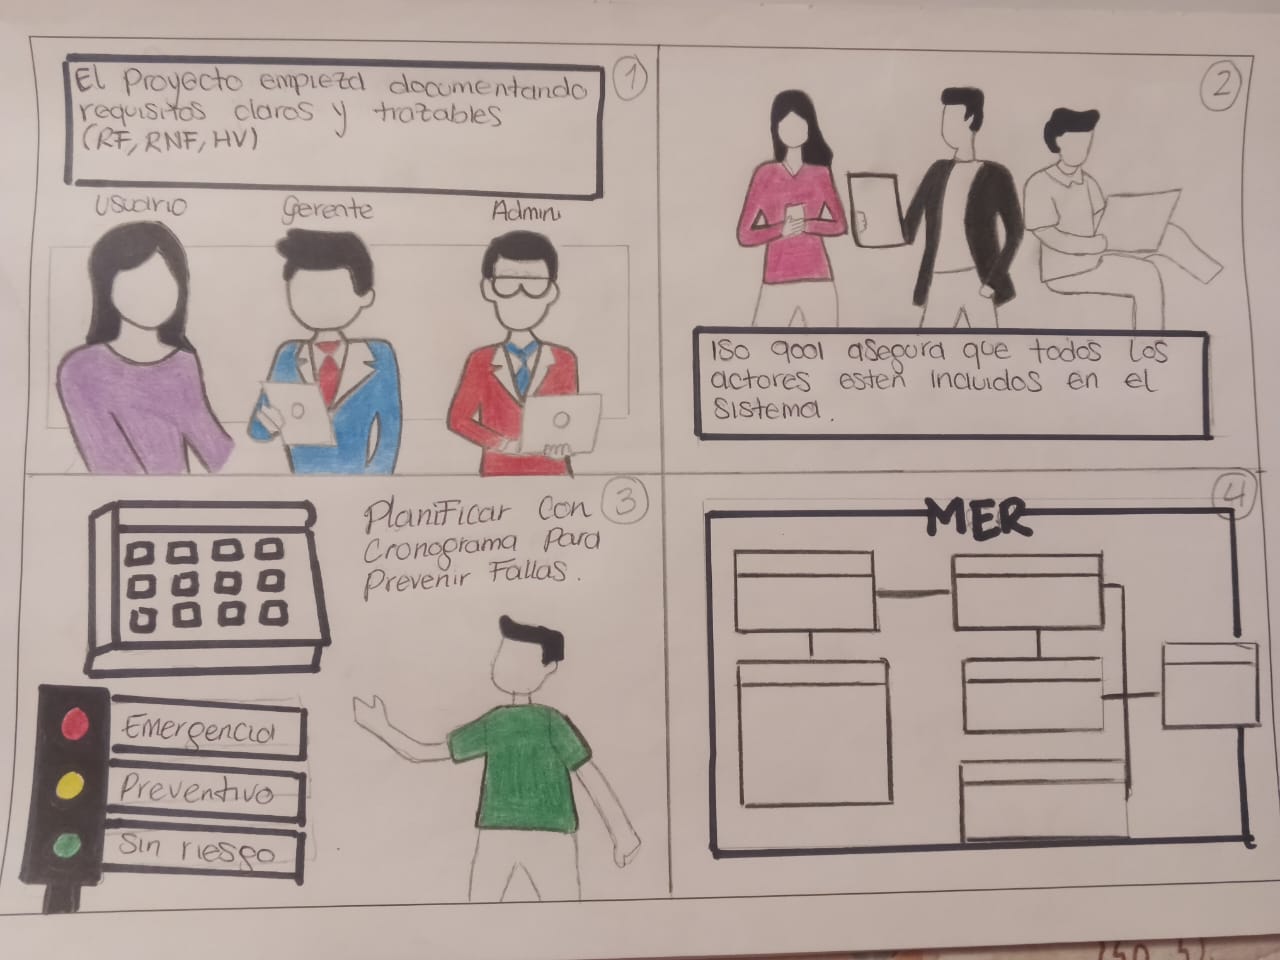 1
El Proyecto empieza documentando
requisitos claros y trazables
(RF, RNF, HV)
Usuario
Gerente
Admin
2
ISO 9001 asegura que todos los
actores esten incluidos en el
sistema.
3
Planificar con
Cronograma Para
Prevenir Fallas.
Emergencia
Preventivo
Sin riesgo
4
MER